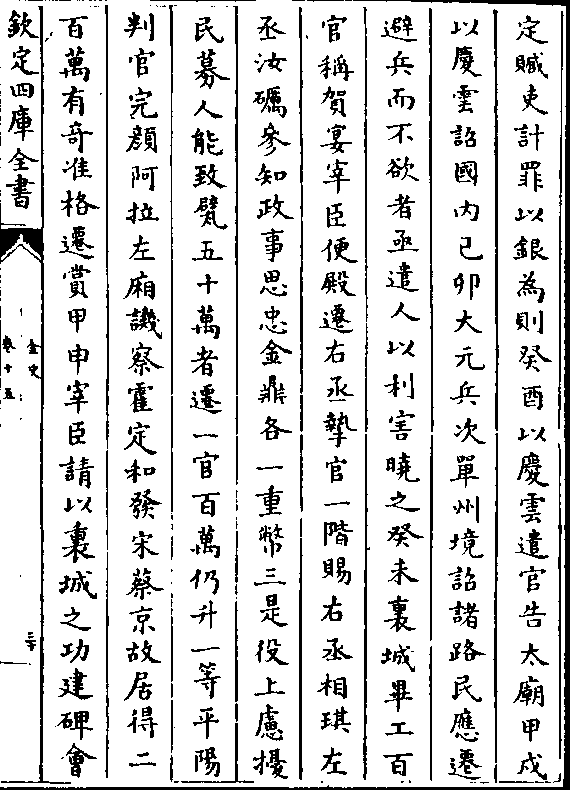 定贓吏計罪以銀為則癸酉以慶雲遣官告太廟甲戌
以慶雲詔國内己卯大元兵次單州境詔諸路民應遷
避兵而不欲者亟遣人以利害曉之癸未裏城畢工百
官稱賀宴宰臣便殿遷右丞摯官一階賜右丞相琪左
丞汝礪參知政事思忠金鼎各一重幣三是役上慮擾
民募人能致甓五十萬者遷一官百萬仍升一等平陽
判官完顔阿拉左廂譏察霍定和發宋蔡京故居得二
百萬有奇准格遷賞甲申宰臣請以裏城之功建碑會
欽定四庫全書
金史
卷十五
三十